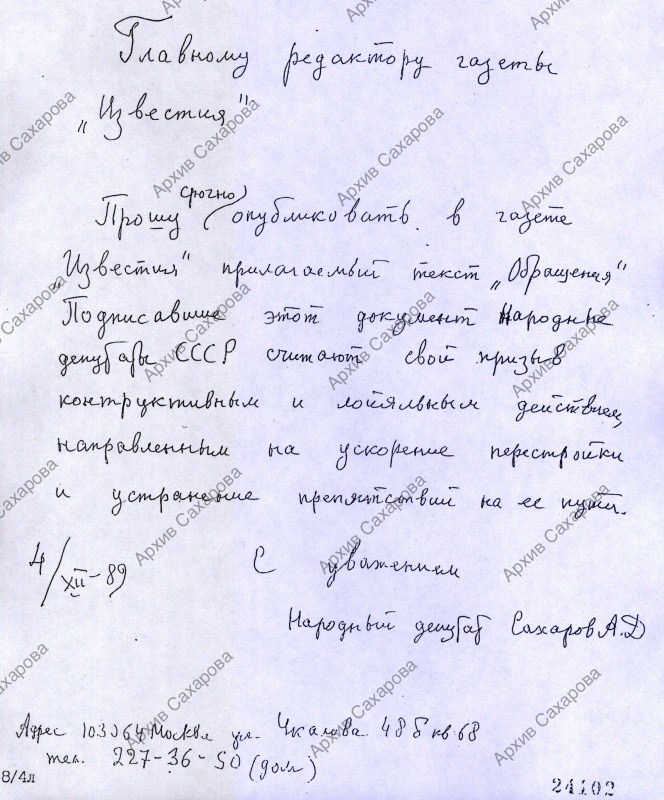 Главному редактору газеты
„Известия"
срочно
Прошу опубликовать в газете
„Известия" прилагаемый текст „Обращения"
Подписавшие этот документ Народные
депутаты СССР считают свой призыв
контруктивным и лойяльным действием,
направленным на ускорение перестройки
и устранение препятствий на ее пути.
4/XII-89 С уважением
Народный депутат Сахаров А.Д
Адрес 103064 Москва ул. Чкалова 48 б кв 68
тел. 227-36-50 (дом)
8/4л
24102
Архив Сахарова